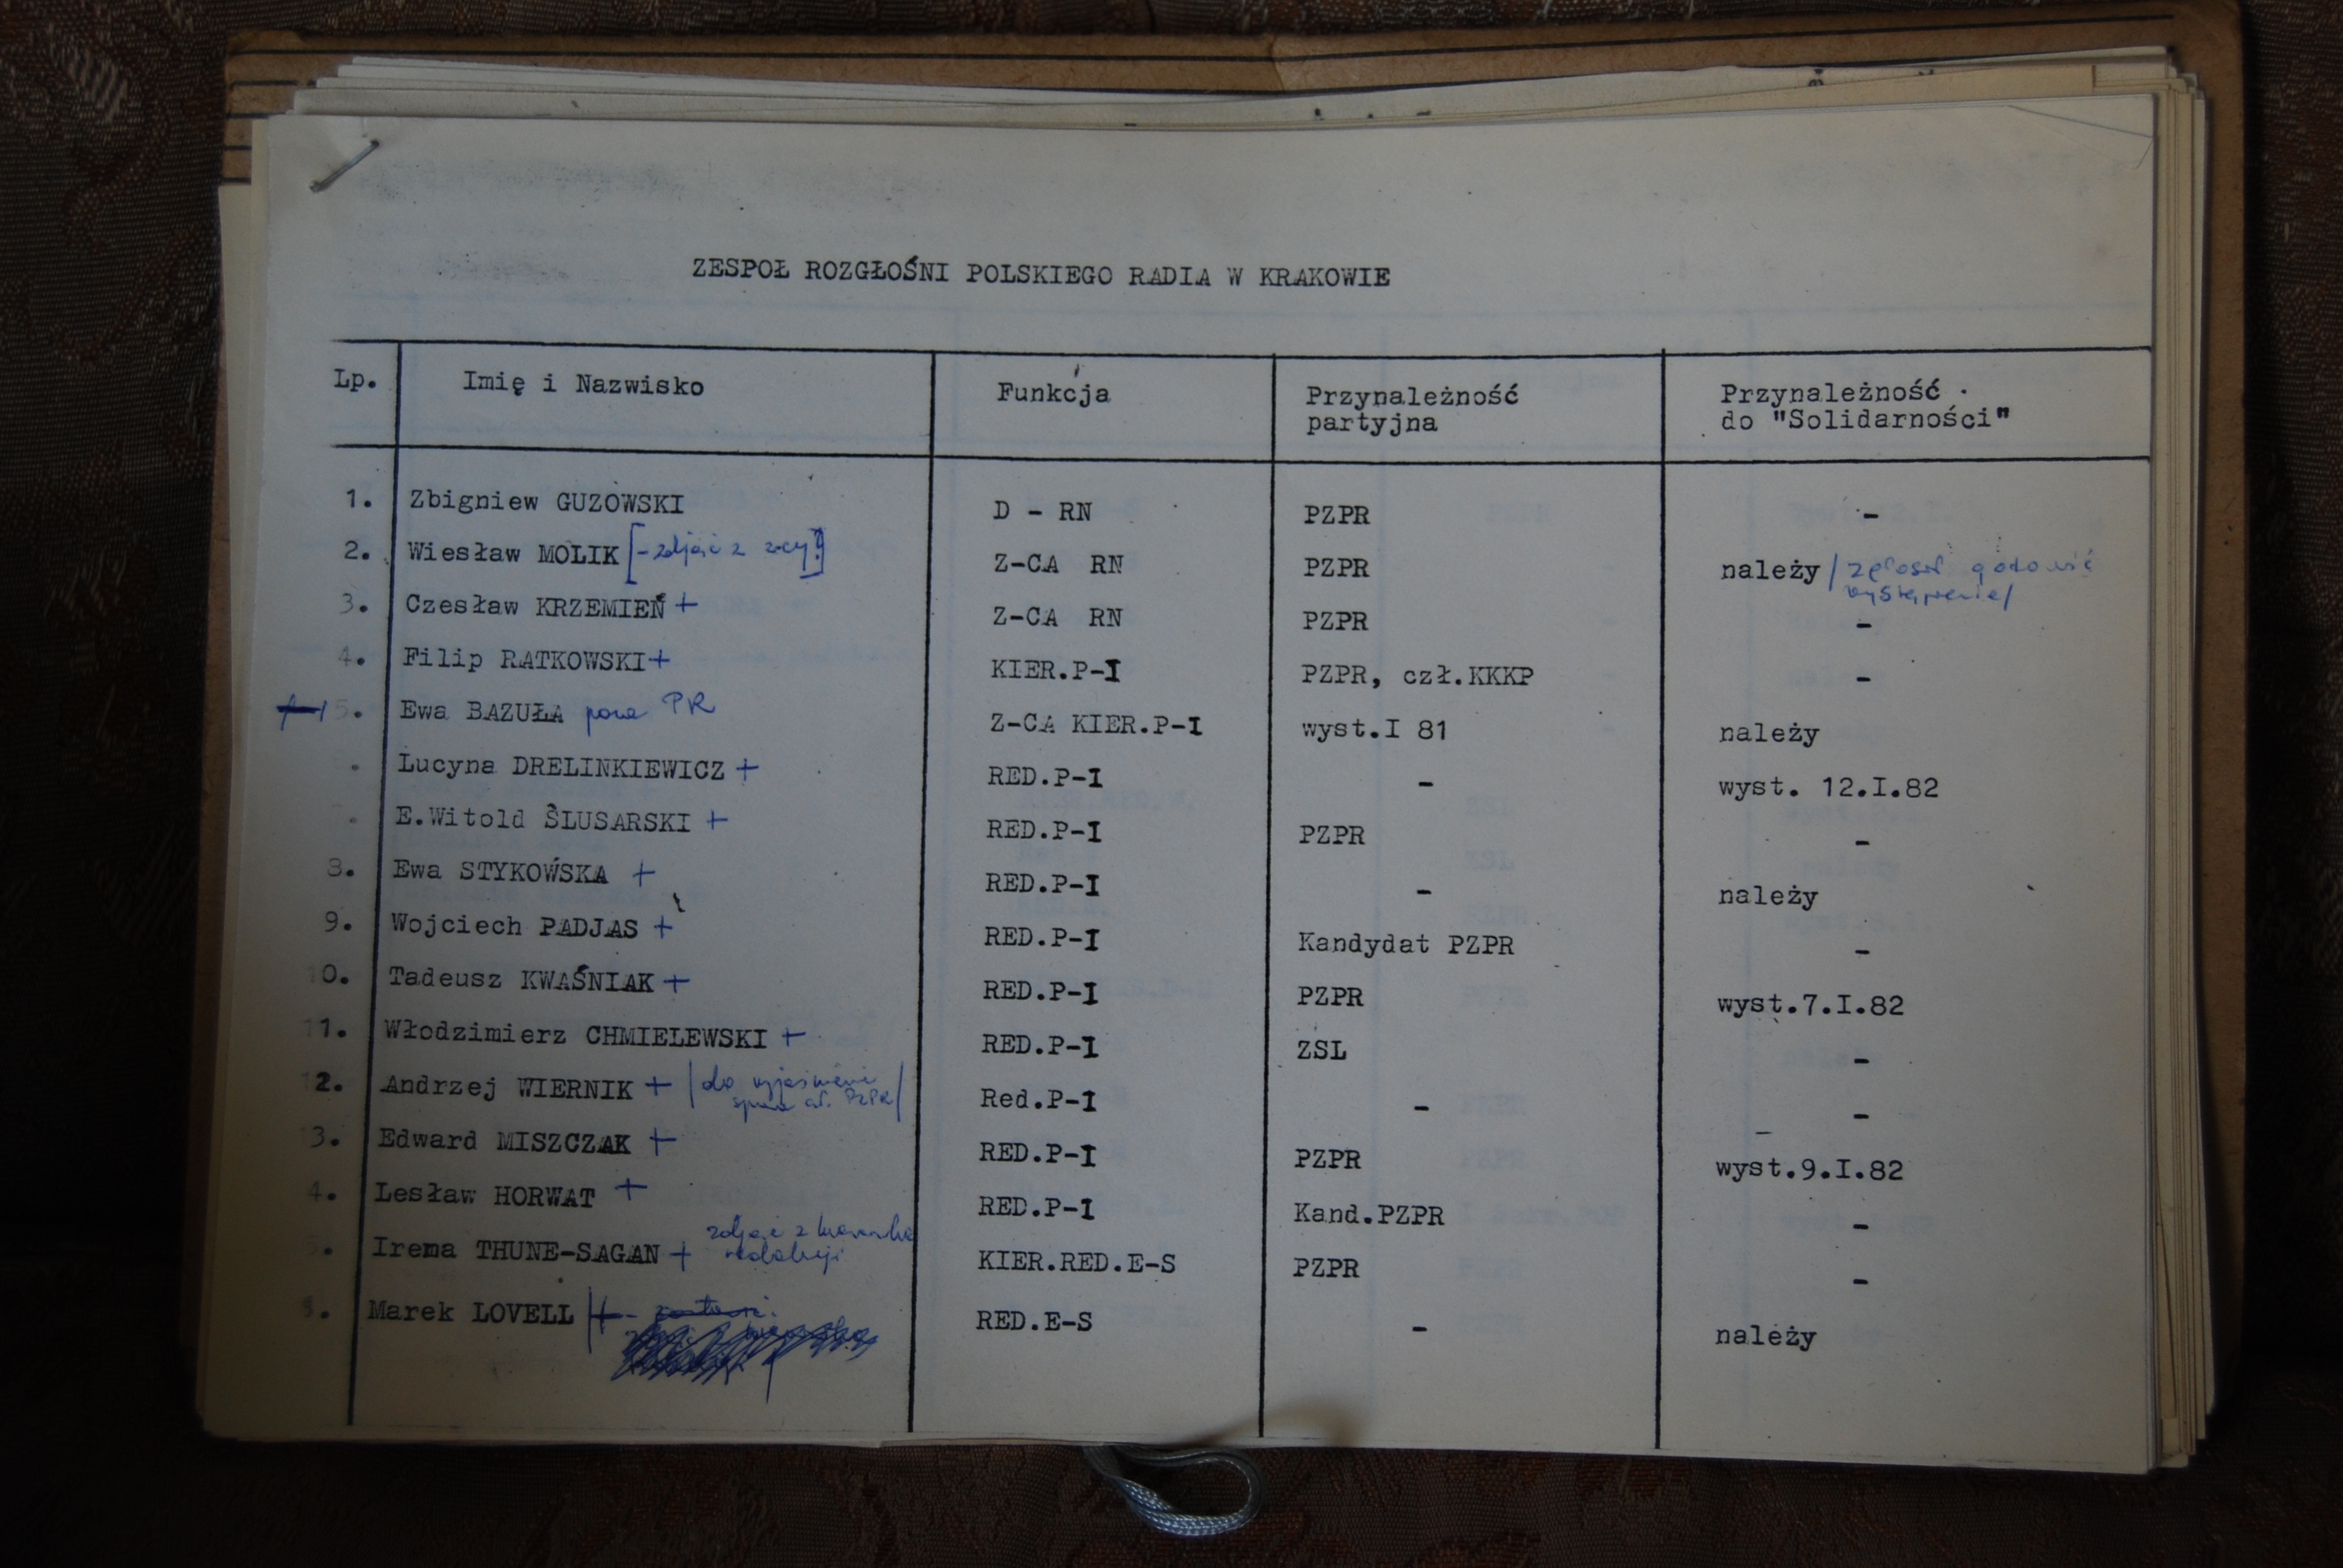 ZESPOŁ ROZGŁOŚNI POLSKIEGO RADIA W KRAKOWIE
Lp. Imię i Nazwisko Funkcja Przynależność partyjna Przynależność do "Solidarności"
1. Zbigniew GUZOWSKI D - RN PZPR -
2. Wiesław MOLIK [- zdjąć z z-cy!] Z-CA RN PZPR należy /zgłosił gotowość wystąpienia/
3. Czesław KRZEMIEŃ + Z-CA RN PZPR -
4. Filip RATKOWSKI + KIER.P-I PZPR, czł.KKKP -
5. Ewa BAZUŁA poza PR Z-CA KIER.P-I wyst.I 81 należy
. Lucyna DRELINKIEWICZ + RED.P-I - wyst. 12.I.82
. E.Witold ŚLUSARSKI + RED.P-I PZPR -
8. Ewa STYKOWSKA + RED.P-I - należy
9. Wojciech PADJAS + RED.P-I Kandydat PZPR -
10. Tadeusz KWAŚNIAK + RED.P-I PZPR wyst.7.I.82
11. Włodzimierz CHMIELEWSKI + RED.P-I ZSL -
12. Andrzej WIERNIK + /do wyjaśnienia sprawa czł. PZPR/ Red.P-I - -
3. Edward MISZCZAK + RED.P-I PZPR wyst.9.I.82
4. Lesław HORWAT + RED.P-I Kand.PZPR -
5. Irena THUNE-SAGAN + zdjąć z redakcji KIER.RED.E-S PZPR -
Marek LOVELL RED.E-S - należy